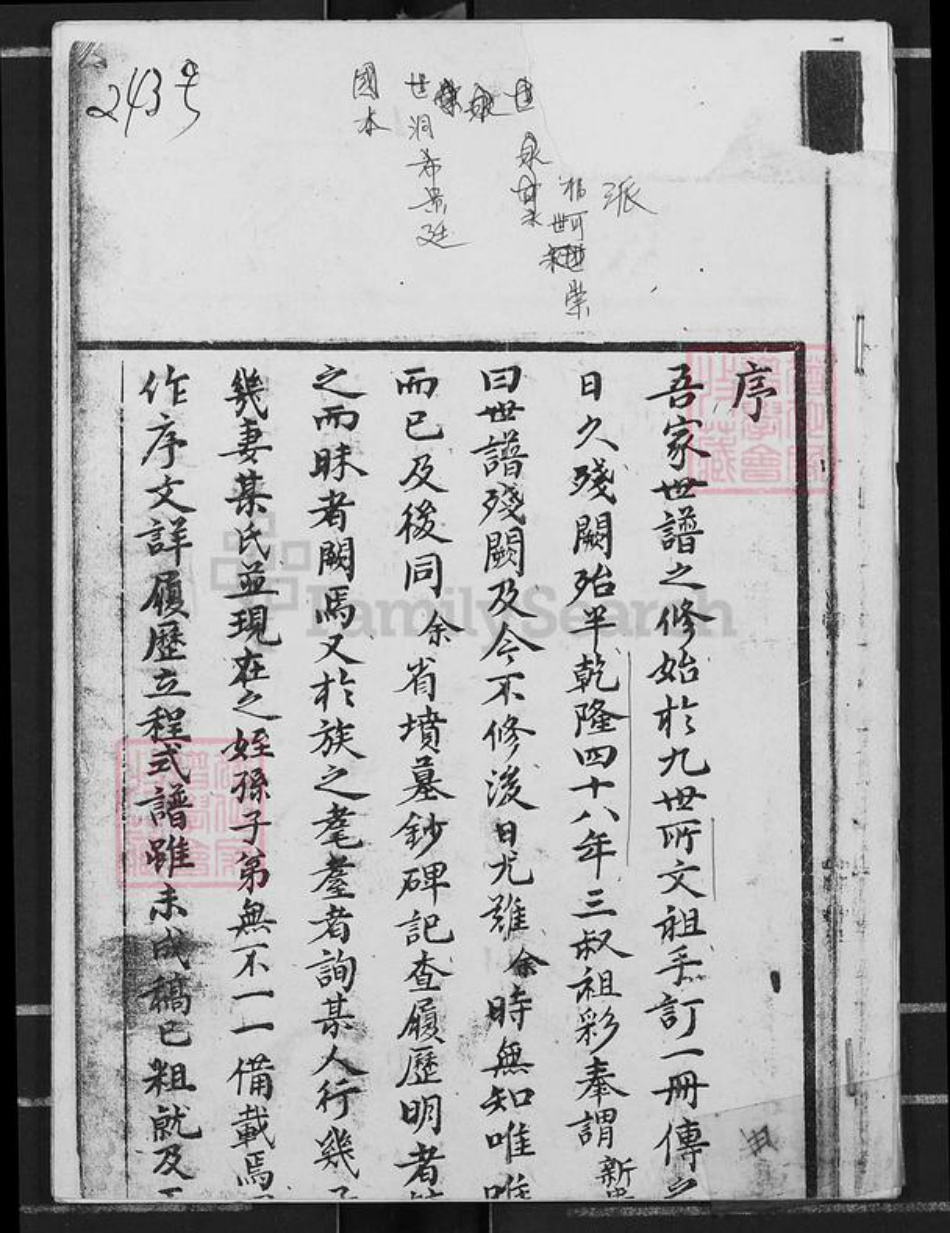 243号
派
國本
世洞希景廷
序
吾家世譜之修始於九世所文祖手訂一冊傳之
日久殘闕殆半乾隆四十八年三叔祖彩奉謂新
曰世譜殘闕及今不修後日尤難余時無知唯唯
而已及後同余省墳墓鈔碑記查履歷明者
之而昧者闕焉又於族之耄耋者詢某人行幾
幾妻某氏並現在之姪孫子弟無不一一備載焉
作序文詳履歷立程式譜雖未成稿已粗就及
FamilySearch